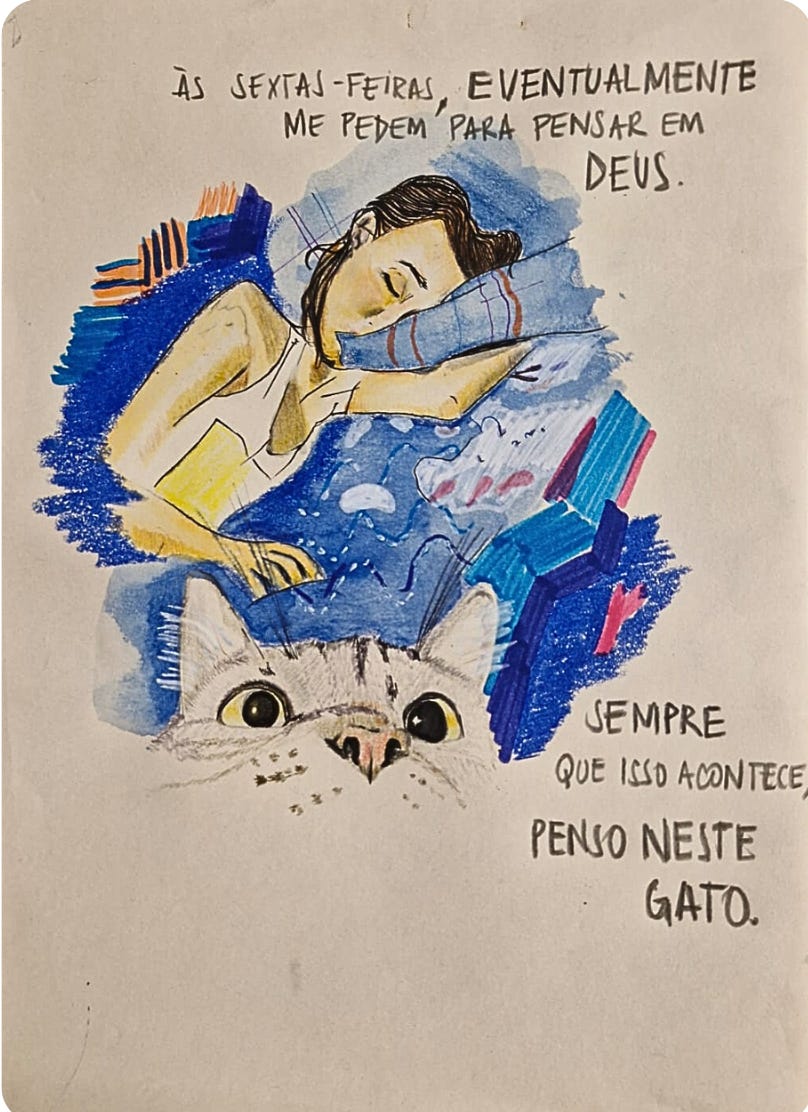 ÀS SEXTAS-FEIRAS, EVENTUALMENTE
ME PEDEM PARA PENSAR EM
DEUS.
SEMPRE
QUE ISSO ACONTECE,
PENSO NESTE
GATO.